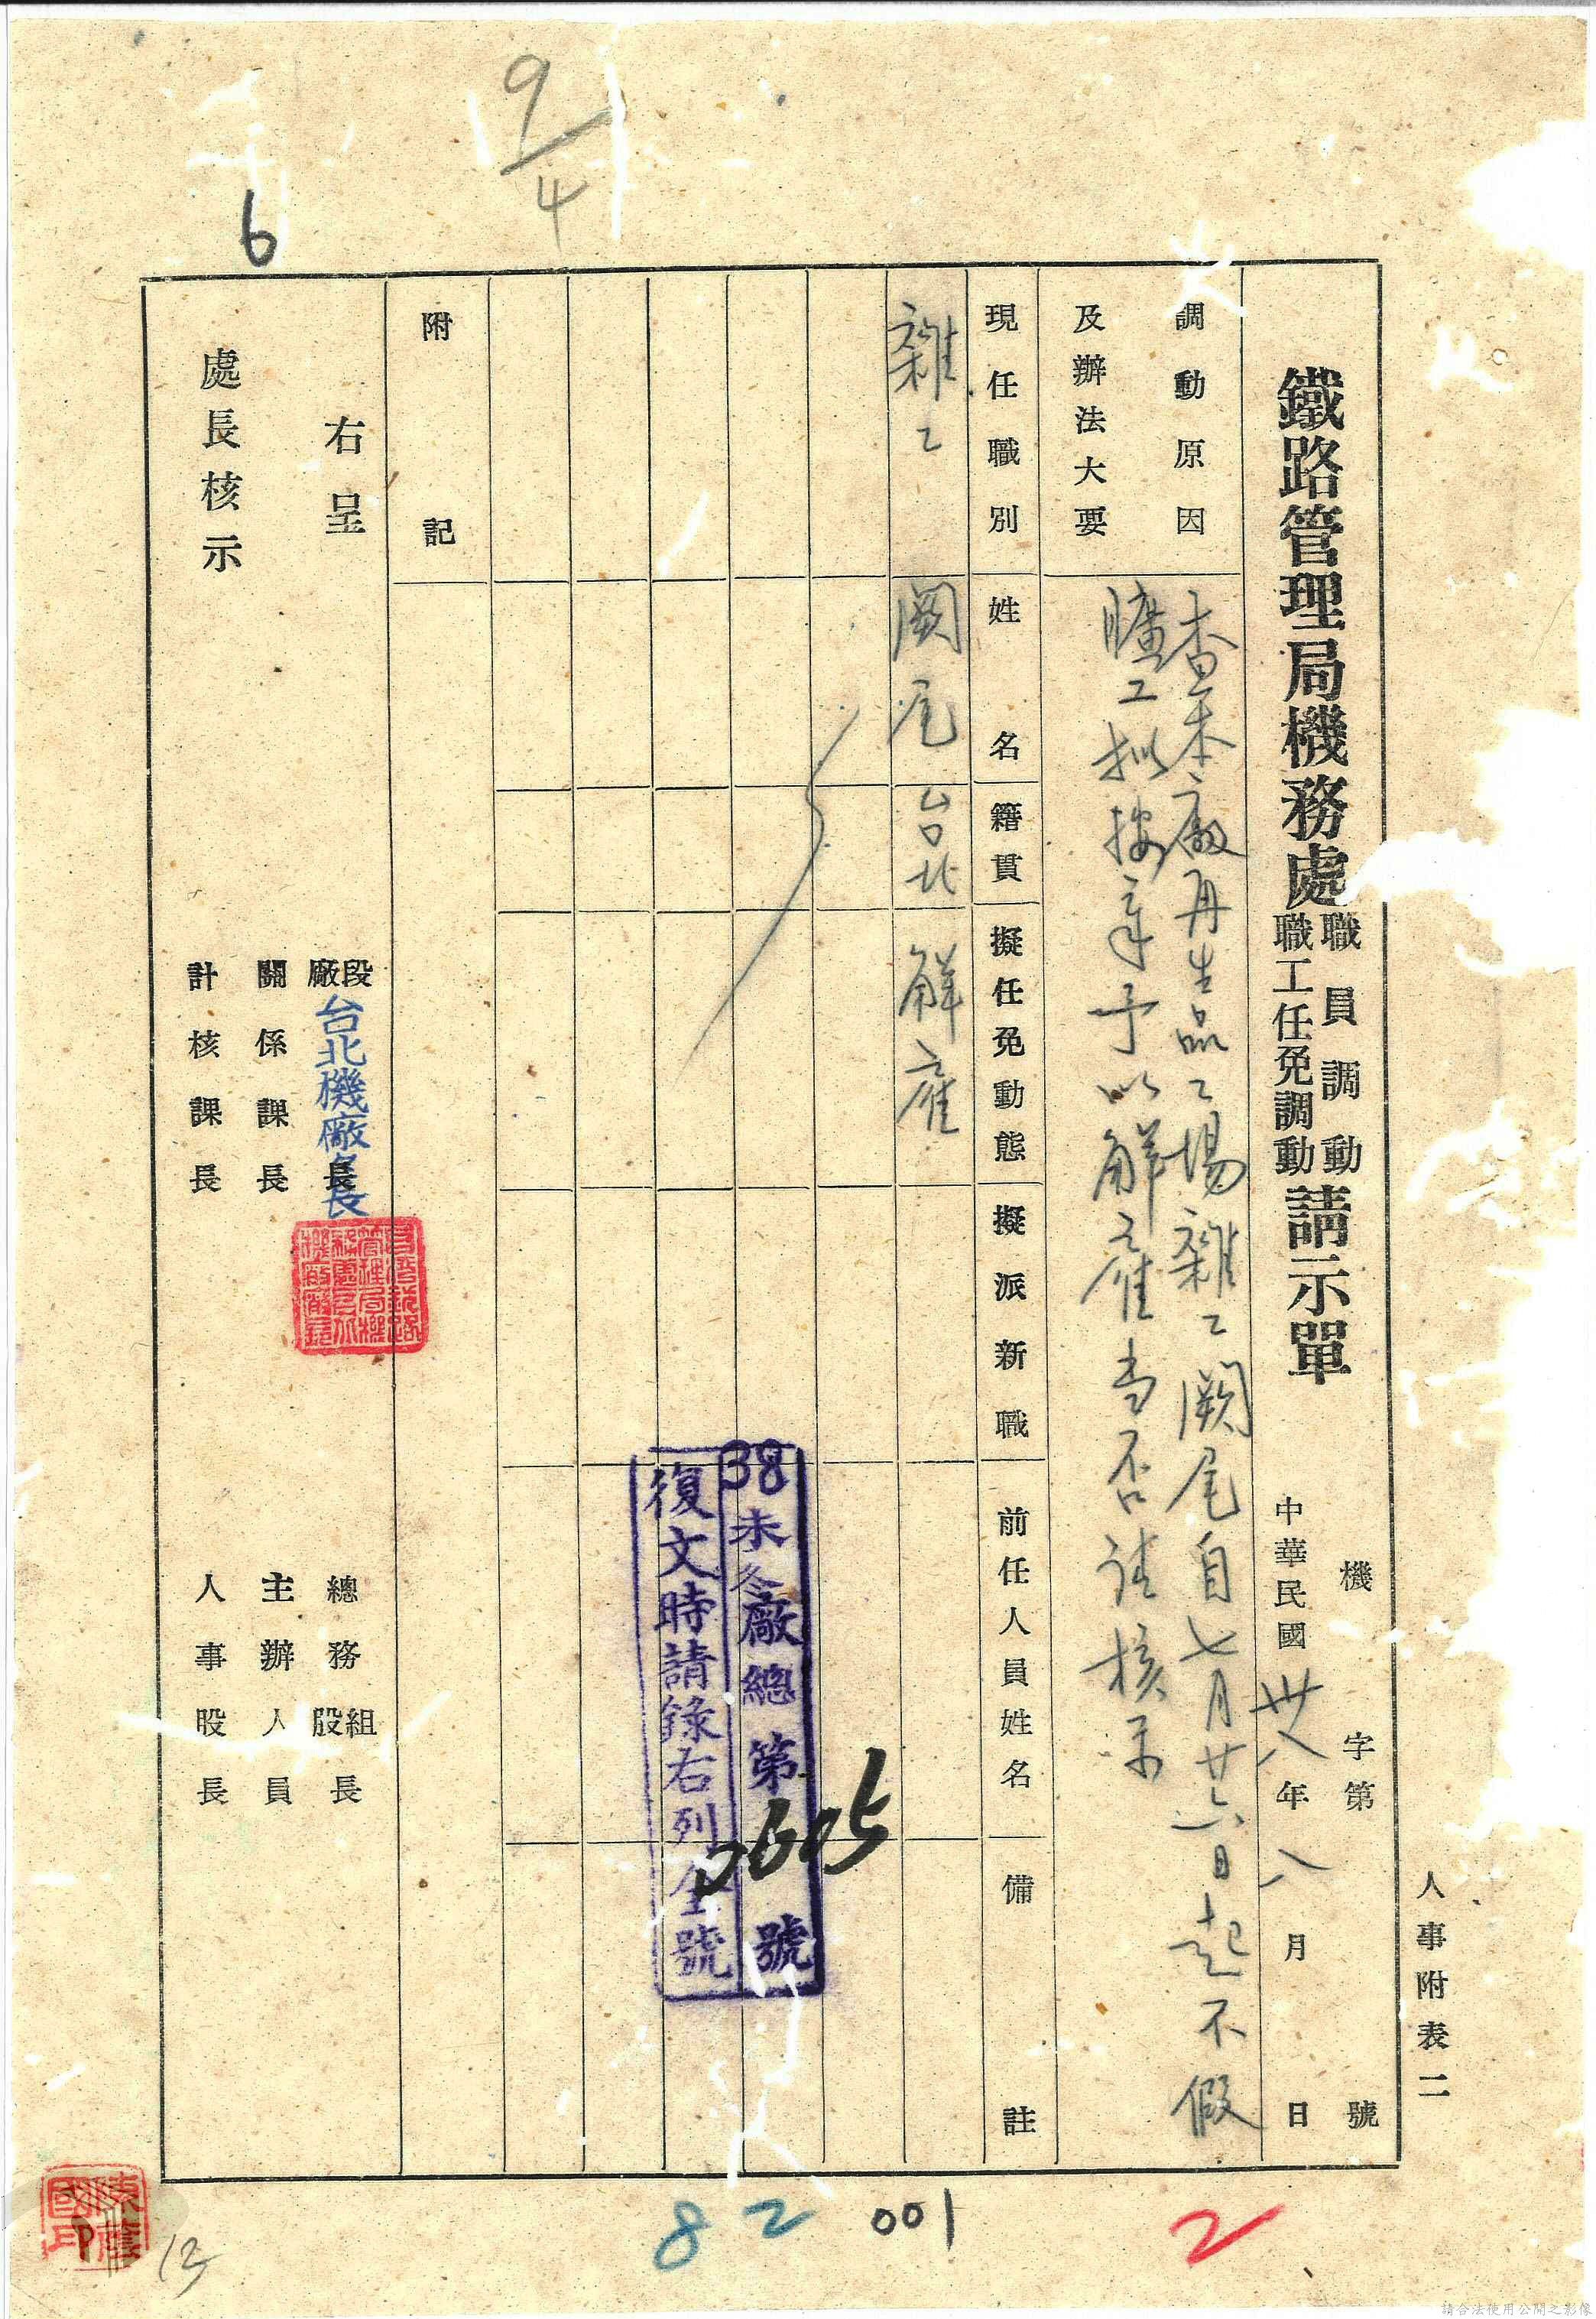 人事附表二
鐵路管理局機務處職員調動職工任免調動請示單
機 字第 號
中華民國卅八年八月 日
調動原因及辦法大要
查本廠再生品工場雜工闕尾自七月廿六日起不假
曠工拟按章予以解雇当否请核示
現任職別 姓名 籍貫 擬任免動態 擬派新職 前任人員姓名 備註
雜工 闕尾 台北 解雇
38未冬廠總第 號
0605
復文時請錄右列全號
附記
右呈
處長核示
段廠長 台北機廠長
關係課長
計核課長
總務組股長
主辦人員
人事股長
9/4
6
82
001
2
13
請合法使用公開之影像